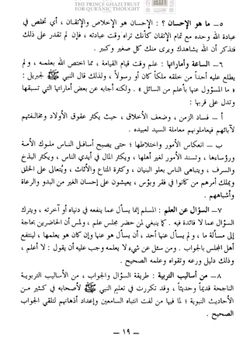 THE PRINCE GHAZI TRUST
FOR QUR'ANIC THOUGHT
٥ــ ما هو الإحسان ؟ : الإحسان هو الإخلاص والإتقان ، أي تخلص في
عبادة الله وحده مع تمام الإتقان كأنك تراه وقت عبادته ، فإن لم تقدر على ذلك
فتذكر أن الله يشاهدك ويرى منك كل صغير وكبير .
٦ــ الساعة وأماراتها : علم وقت قيام القيامة ، مما اختص الله بعلمه ، ولم
يطلع عليه أحداً من خلقه ملكاً كان أو رسولاً ، ولذلك قال النبي ﷺ لجبريل :
« ما المسؤول عنها بأعلم من السائل » . ولكنه أجابه عن بعض أماراتها التي تسبقها
وتدل على قربها :
أ ــ فساد الزمن ، وضعف الأخلاق ، حيث يكثر عقوق الأولاد ومخالفتهم
لآبائهم فيعاملونهم معاملة السيد لعبيده .
ب ــ انعكاس الأمور واختلاطها ؛ حتى يصبح أسافل الناس ملوك الأمة
ورؤساءها ، وتسند الأمور لغير أهلها ، ويكثر المال في أيدي الناس ، ويكثر البذخ
والسرف ، ويتباهى الناس بعلو البنيان ، وكثرة المتاع والأثاث ، ويُتعالى على الخلق
ويملك أمرهم من كانوا في فقر وبؤس ، يعيشون على إحسان الغير من البدو والرعاة
وأشباههم .
٧ــ السؤال عن العلم : المسلم إنما يسأل عما ينفعه في دنياه أو آخرته ، ويترك
السؤال عما لا فائدة فيه . كما ينبغي لمن حضر مجلس علم ، ولمس أن الحاضرين بحاجة
إلى مسألة ما ، ولم يسأل عنها أحد ، أن يسأل هو عنها وإن كان هو يعلمها ، لينتفع
أهل المجلس بالجواب . ومن سئل عن شيء لا يعلمه وجب عليه أن يقول : لا أعلم ،
وذلك دليل ورعه وتقواه وعلمه الصحيح .
٨ــ من أساليب التربية : طريقة السؤال والجواب ، من الأساليب التربوية
الناجحة قديماً وحديثاً ، وقد تكررت في تعليم النبي ﷺ لأصحابه في كثير من
الأحاديث النبوية ؛ لما فيها من لفت انتباه السامعين وإعداد أذهانهم لتلقي الجواب
الصحيح .
ــ ١٩ ــ